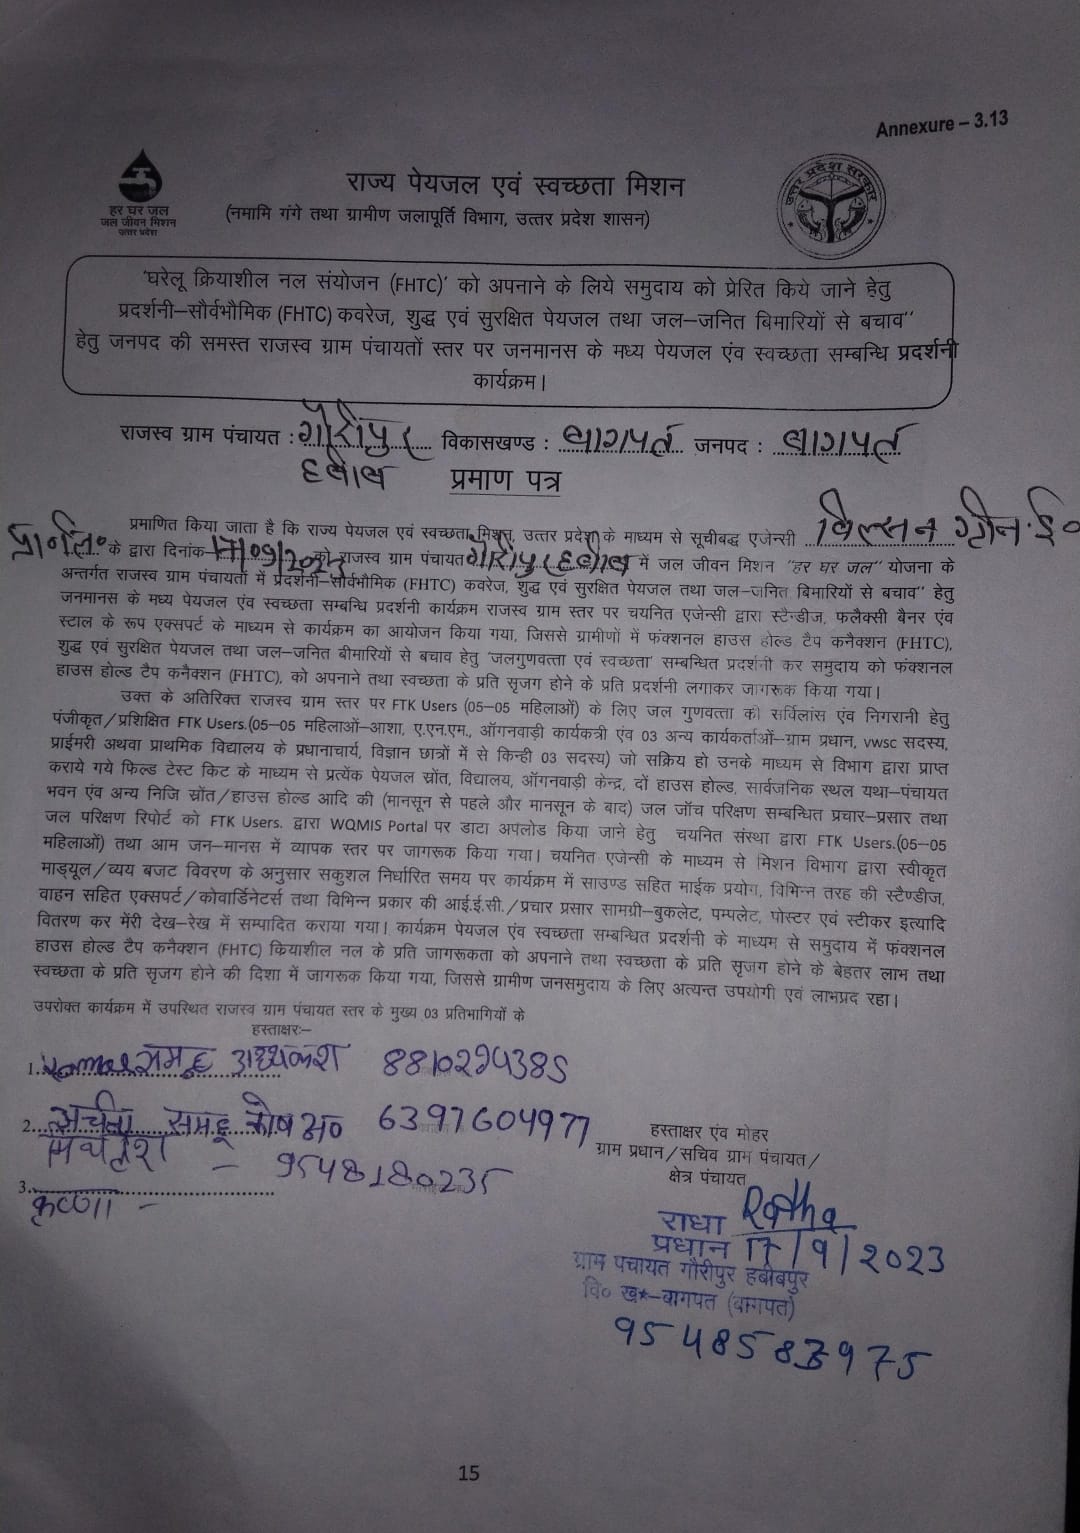 Annexure – 3.13
हर घर जल
जल जीवन मिशन
उत्तर प्रदेश
उत्तर प्रदेश सरकार
राज्य पेयजल एवं स्वच्छता मिशन
(नमामि गंगे तथा ग्रामीण जलापूर्ति विभाग, उत्तर प्रदेश शासन)
'घरेलू क्रियाशील नल संयोजन (FHTC)' को अपनाने के लिये समुदाय को प्रेरित किये जाने हेतु
प्रदर्शनी–सौर्वभौमिक (FHTC) कवरेज, शुद्ध एवं सुरक्षित पेयजल तथा जल–जनित बिमारियों से बचाव"
हेतु जनपद की समस्त राजस्व ग्राम पंचायतों स्तर पर जनमानस के मध्य पेयजल एंव स्वच्छता सम्बन्धि प्रदर्शनी
कार्यक्रम।
राजस्व ग्राम पंचायत : गौरीपुर विकासखण्ड : बागपत जनपद : बागपत
हबीब
प्रमाण पत्र
प्रमाणित किया जाता है कि राज्य पेयजल एवं स्वच्छता मिशन, उत्तर प्रदेश के माध्यम से सूचीबद्ध एजेन्सी विल्सन ग्रीन ई०
प्रा० लि० के द्वारा दिनांक– 17/09/2023 को राजस्व ग्राम पंचायत गौरीपुर हबीब में जल जीवन मिशन "हर घर जल" योजना के
अन्तर्गत राजस्व ग्राम पंचायतों में प्रदर्शनी–सौर्वभौमिक (FHTC) कवरेज, शुद्ध एवं सुरक्षित पेयजल तथा जल–जनित बिमारियों से बचाव" हेतु
जनमानस के मध्य पेयजल एंव स्वच्छता सम्बन्धि प्रदर्शनी कार्यक्रम राजस्व ग्राम स्तर पर चयनित एजेन्सी द्वारा स्टैन्डीज, फलैक्सी बैनर एंव
स्टाल के रूप एक्सपर्ट के माध्यम से कार्यक्रम का आयोजन किया गया, जिससे ग्रामीणों में फंक्शनल हाउस होल्ड टैप कनैक्शन (FHTC),
शुद्ध एवं सुरक्षित पेयजल तथा जल–जनित बीमारियों से बचाव हेतु 'जलगुणवत्ता एवं स्वच्छता' सम्बन्धित प्रदर्शनी कर समुदाय को फंक्शनल
हाउस होल्ड टैप कनैक्शन (FHTC), को अपनाने तथा स्वच्छता के प्रति सृजग होने के प्रति प्रदर्शनी लगाकर जागरूक किया गया।
उक्त के अतिरिक्त राजस्व ग्राम स्तर पर FTK Users (05–05 महिलाओं) के लिए जल गुणवत्ता की सर्विलांस एंव निगरानी हेतु
पंजीकृत/प्रशिक्षित FTK Users.(05–05 महिलाओं–आशा, ए.एन.एम., ऑगनवाड़ी कार्यकत्री एंव 03 अन्य कार्यकर्ताओं–ग्राम प्रधान, vwsc सदस्य,
प्राईमरी अथवा प्राथमिक विद्यालय के प्रधानाचार्य, विज्ञान छात्रों में से किन्ही 03 सदस्य) जो सक्रिय हो उनके माध्यम से विभाग द्वारा प्राप्त
कराये गये फिल्ड टेस्ट किट के माध्यम से प्रत्येंक पेयजल स्रोंत, विद्यालय, ऑगनवाड़ी केन्द्र, दों हाउस होल्ड, सार्वजनिक स्थल यथा–पंचायत
भवन एंव अन्य निजि स्रोंत/हाउस होल्ड आदि की (मानसून से पहले और मानसून के बाद) जल जॉच परिक्षण सम्बन्धित प्रचार–प्रसार तथा
जल परिक्षण रिपोर्ट को FTK Users. द्वारा WQMIS Portal पर डाटा अपलोड किया जाने हेतु चयनित संस्था द्वारा FTK Users.(05–05
महिलाओं) तथा आम जन–मानस में व्यापक स्तर पर जागरूक किया गया। चयनित एजेन्सी के माध्यम से मिशन विभाग द्वारा स्वीकृत
माड्यूल/व्यय बजट विवरण के अनुसार सकुशल निर्धारित समय पर कार्यक्रम में साउण्ड सहित माईक प्रयोग, विभिन्न तरह की स्टैण्डीज,
वाहन सहित एक्सपर्ट/कोवार्डिनेटर्स तथा विभिन्न प्रकार की आई.ई.सी./प्रचार प्रसार सामग्री–बुकलेट, पम्पलेट, पोस्टर एवं स्टीकर इत्यादि
वितरण कर मेंरी देख–रेख में सम्पादित कराया गया। कार्यक्रम पेयजल एंव स्वच्छता सम्बन्धित प्रदर्शनी के माध्यम से समुदाय में फंक्शनल
हाउस होल्ड टैप कनैक्शन (FHTC) कियाशील नल के प्रति जागरूकता को अपनाने तथा स्वच्छता के प्रति सृजग होने के बेहतर लाभ तथा
स्वच्छता के प्रति सृजग होने की दिशा में जागरूक किया गया, जिससे ग्रामीण जनसमुदाय के लिए अत्यन्त उपयोगी एवं लाभप्रद रहा।
उपरोक्त कार्यक्रम में उपस्थित राजस्व ग्राम पंचायत स्तर के मुख्य 03 प्रतिभागियों के
हस्ताक्षरः–
1. समूह 8810294385
2. अर्चना समहू कोष अ० 6397604977
मिथलेश – 9548180235
3. कृष्णा –
हस्ताक्षर एंव मोहर
ग्राम प्रधान/सचिव ग्राम पंचायत/
क्षेत्र पंचायत
राधा Radha
प्रधान 17/9/2023
ग्राम पचायत गौरीपुर हबीबपुर
वि० ख*–बागपत (बागपत)
9548583975
15